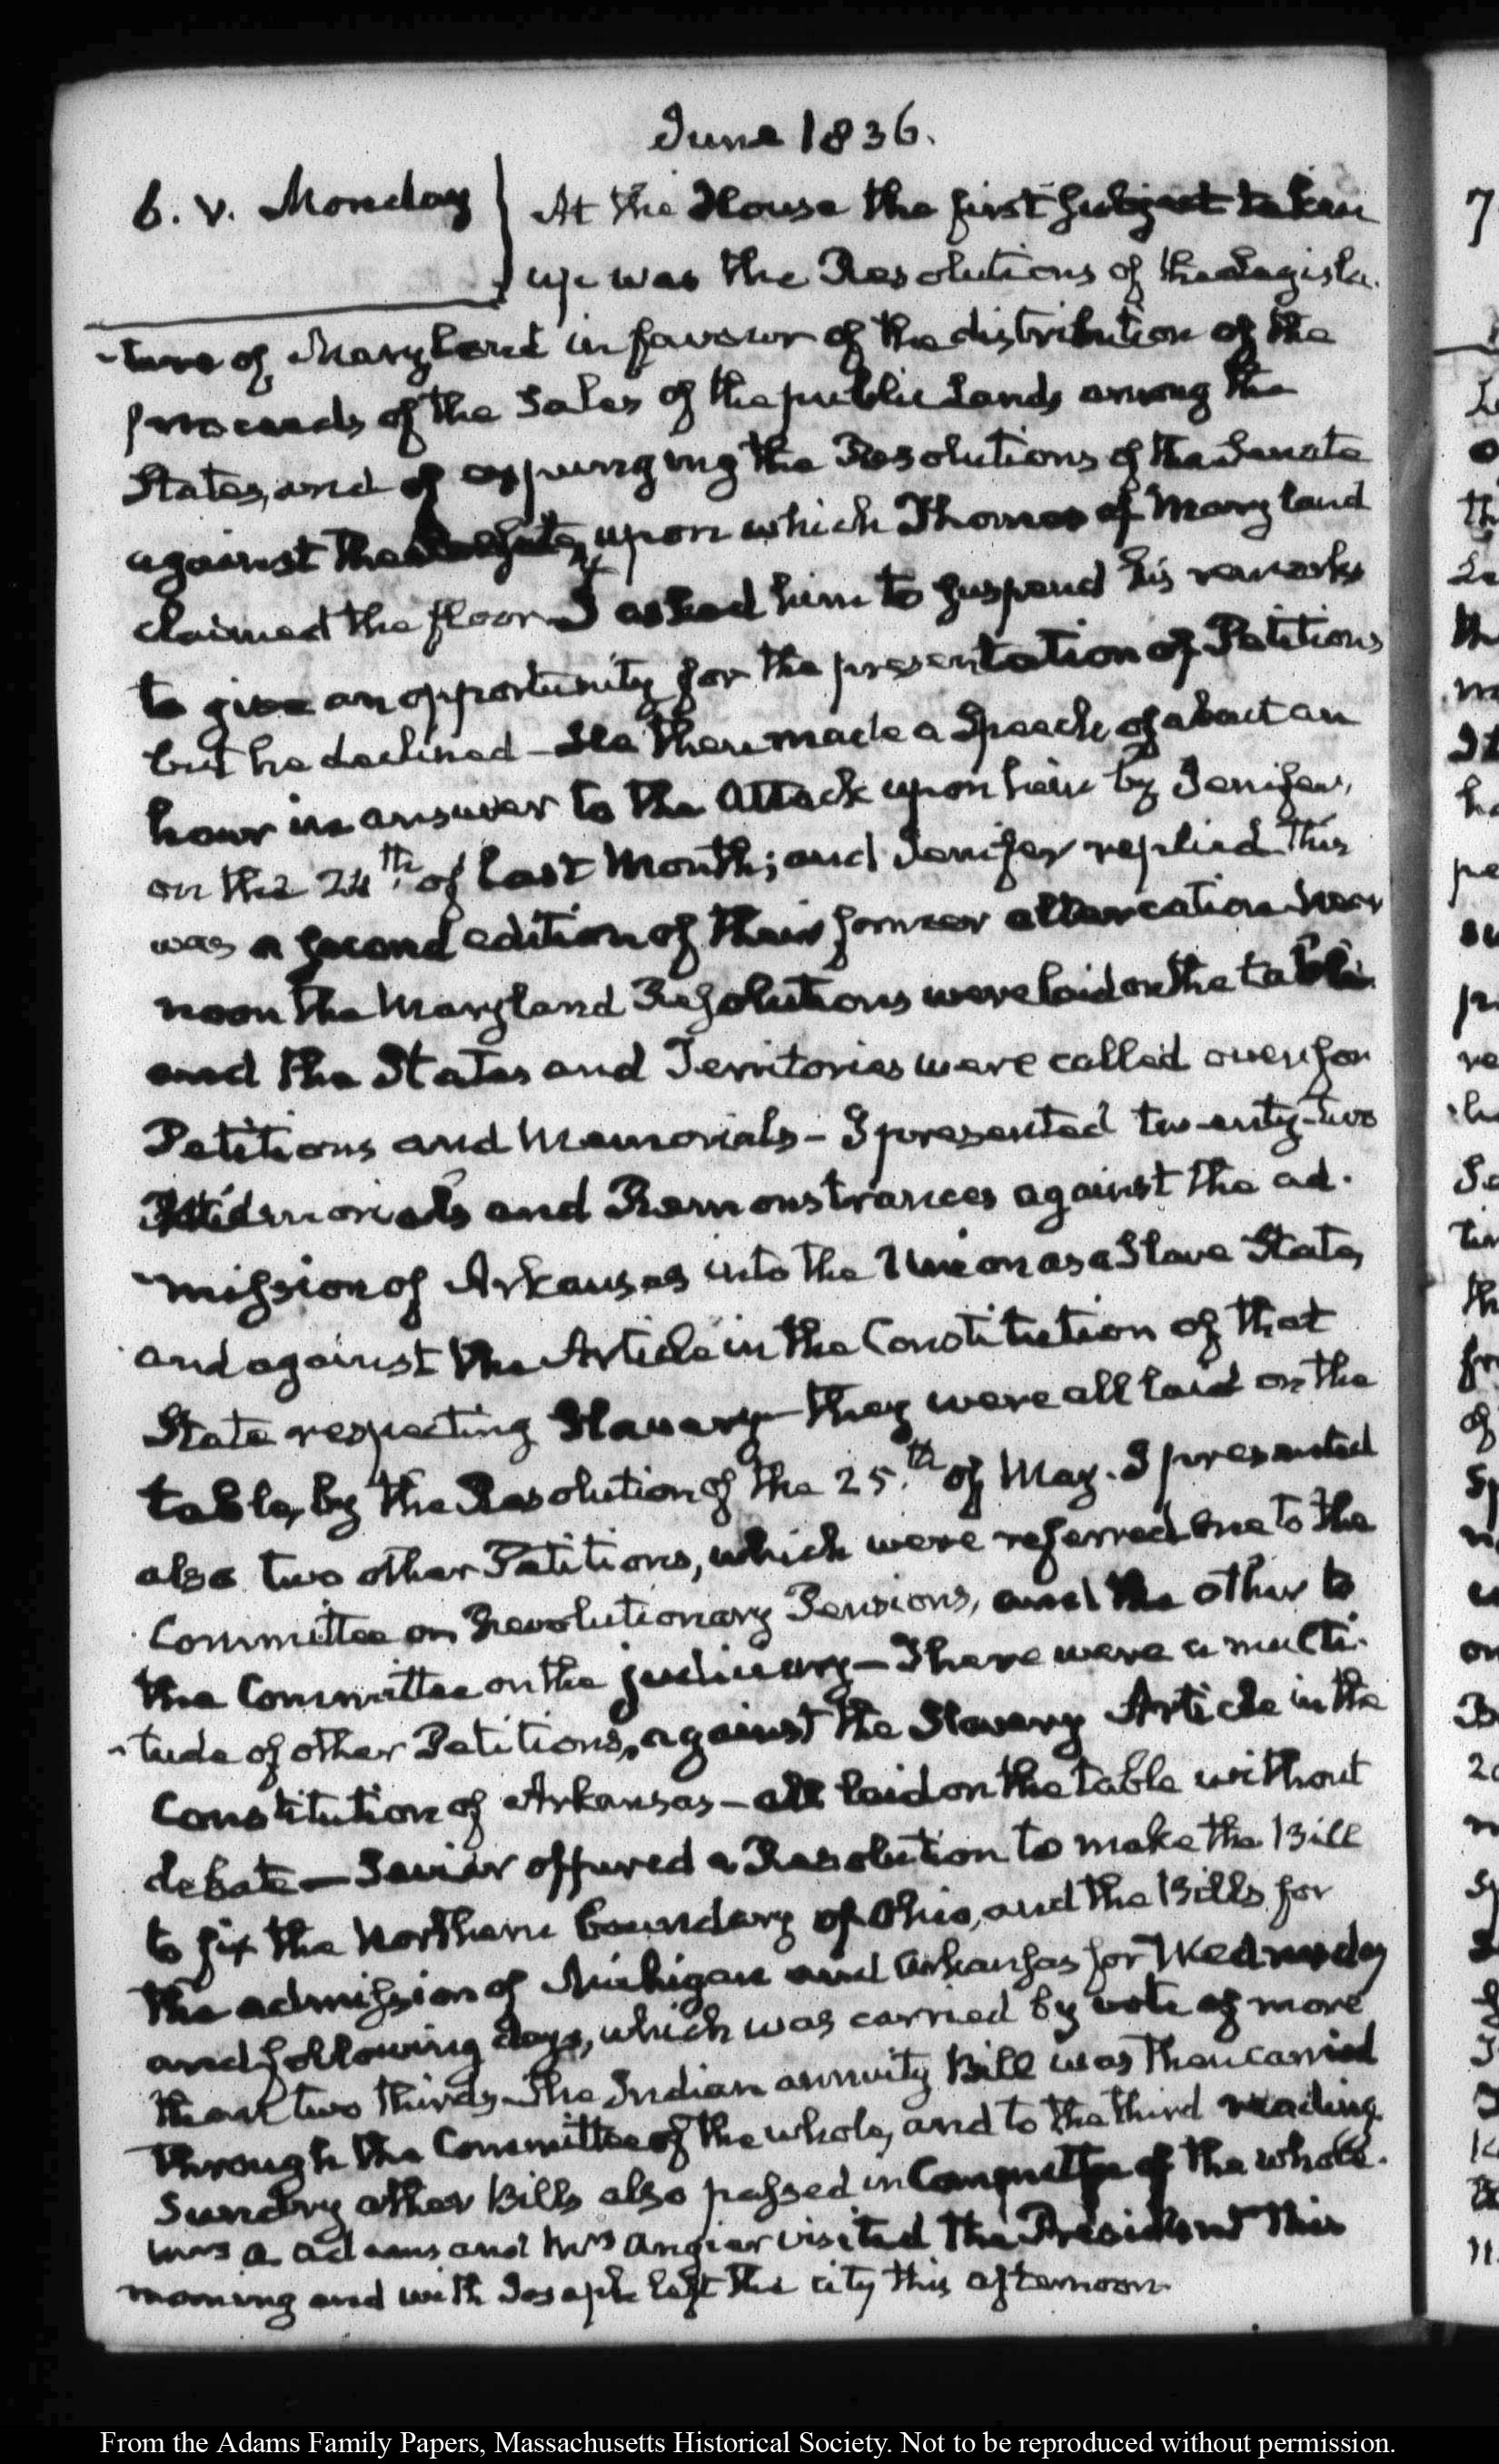 June 1836.
6. V. Monday
At the House the first subject taken
up was the Resolutions of the Legisla-
-ture of Maryland in favour of the distribution of the
proceeds of the Sales of the public Lands among the
States, and of expunging the Resolutions of the Senate
against the upon which Thomas of Maryland
claimed the floor I asked him to suspend his remarks
to give an opportunity for the presentation of Petitions
but he declined – He then made a Speech of about an
hour in answer to the attack upon him by Jenifer,
on the 24th. of last Month; and Jenifer replied this
was a second edition of their former altercation Near
noon the Maryland Resolutions were laid on the table
and the States and Territories were called over for
Petitions and Memorials – I presented twenty-two
and Remonstrances against the ad-
-mission of Arkansas into the Union as a Slave State,
and against the Article in the Constitution of that
State respecting Slavery – they were all laid on the
table, by the Resolution of the 25.th of May. I presented
also two other Petitions, which were referred one to the
Committee on Revolutionary Pensions, and the other to
the Committee on the judiciary – There were a multi-
-tude of other Petitions, against the Slavery Article in the
Constitution of Arkansas – all laid on the table without
debate – Sevier offered a Resolution to make the Bill
to fix the Northern boundary of Ohio, and the Bills for
the admission of Michigan and Arkansas for Wednesday
and following days, which was carried by vote of more
than two thirds – The Indian annuity Bill was then carried
through the Committee of the whole, and to the third reading.
Sundry other Bills also passed in Committee of the whole.
Mrs A Adams and Mrs Angier visited the President this
morning and with Joseph left the city this afternoon.
From the Adams Family Papers, Massachusetts Historical Society. Not to be reproduced without permission.